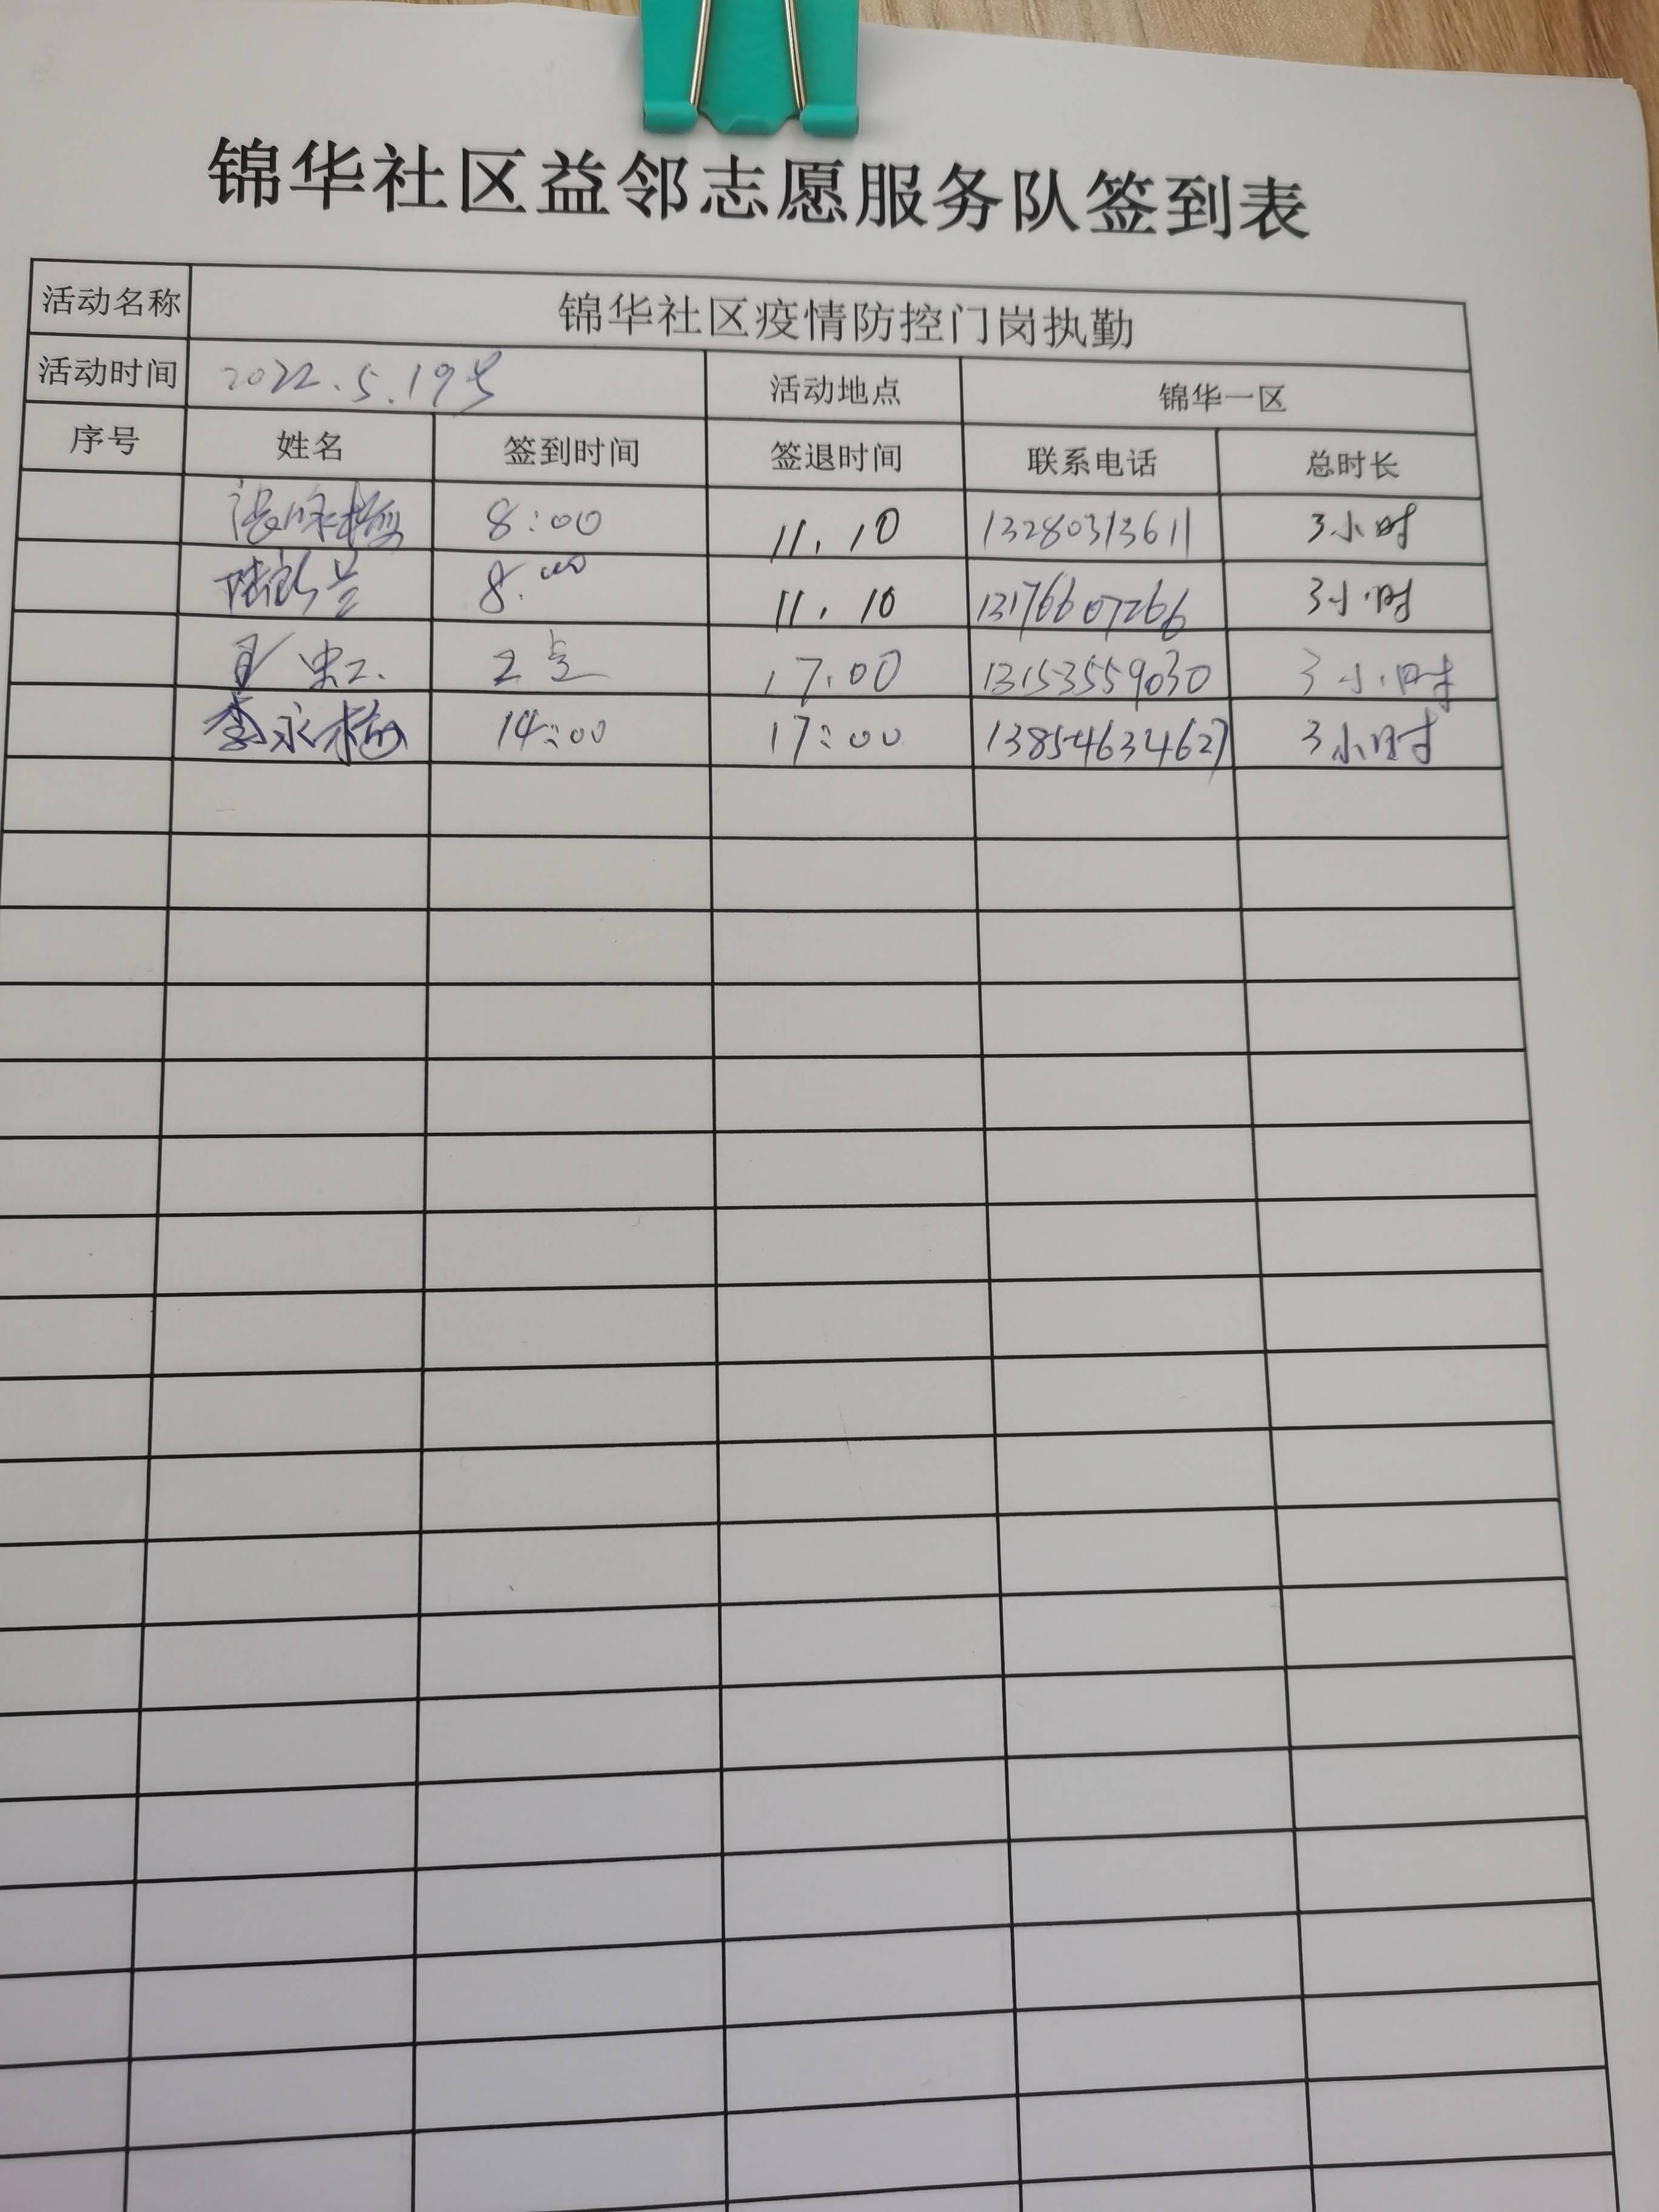 锦华社区益邻志愿服务队签到表
活动名称 锦华社区疫情防控门岗执勤
活动时间 2022.5.19号 活动地点 锦华一区
序号 姓名 签到时间 签退时间 联系电话 总时长
8:00 11.10 13280313611 3小时
8:00 11.10 13176607266 3小时
2点 17.00 13153559030 3小时
李永梅 14:00 17:00 13854634627 3小时